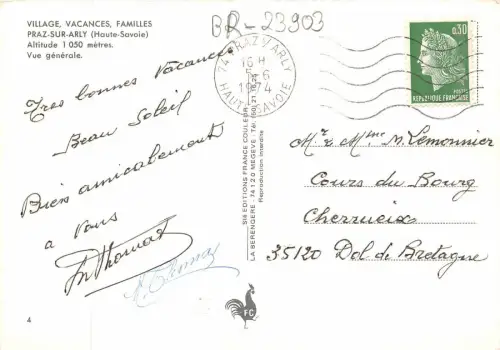 VILLAGE, VACANCES, FAMILLES
PRAZ-SUR-ARLY (Haute-Savoie)
Altitude 1 050 mètres.
Vue générale.
BR-23903
74 PRAZ S/ ARLY
16 H
6
1974
HAUTE-SAVOIE
0,30
POSTES
REPUBLIQUE FRANÇAISE
Tres bonnes vacances
Beau Soleil
Bien amicalement
a vous
Sté EDITIONS FRANCE COULEUR
LA BERENGERE - 74120 MEGEVE - Tél. (50) 21.18.25
Reproduction interdite
Mr & Mme M. Lemonnier
Cours du Bourg
Cherrueix
35120 Dol de Bretagne
FC
4